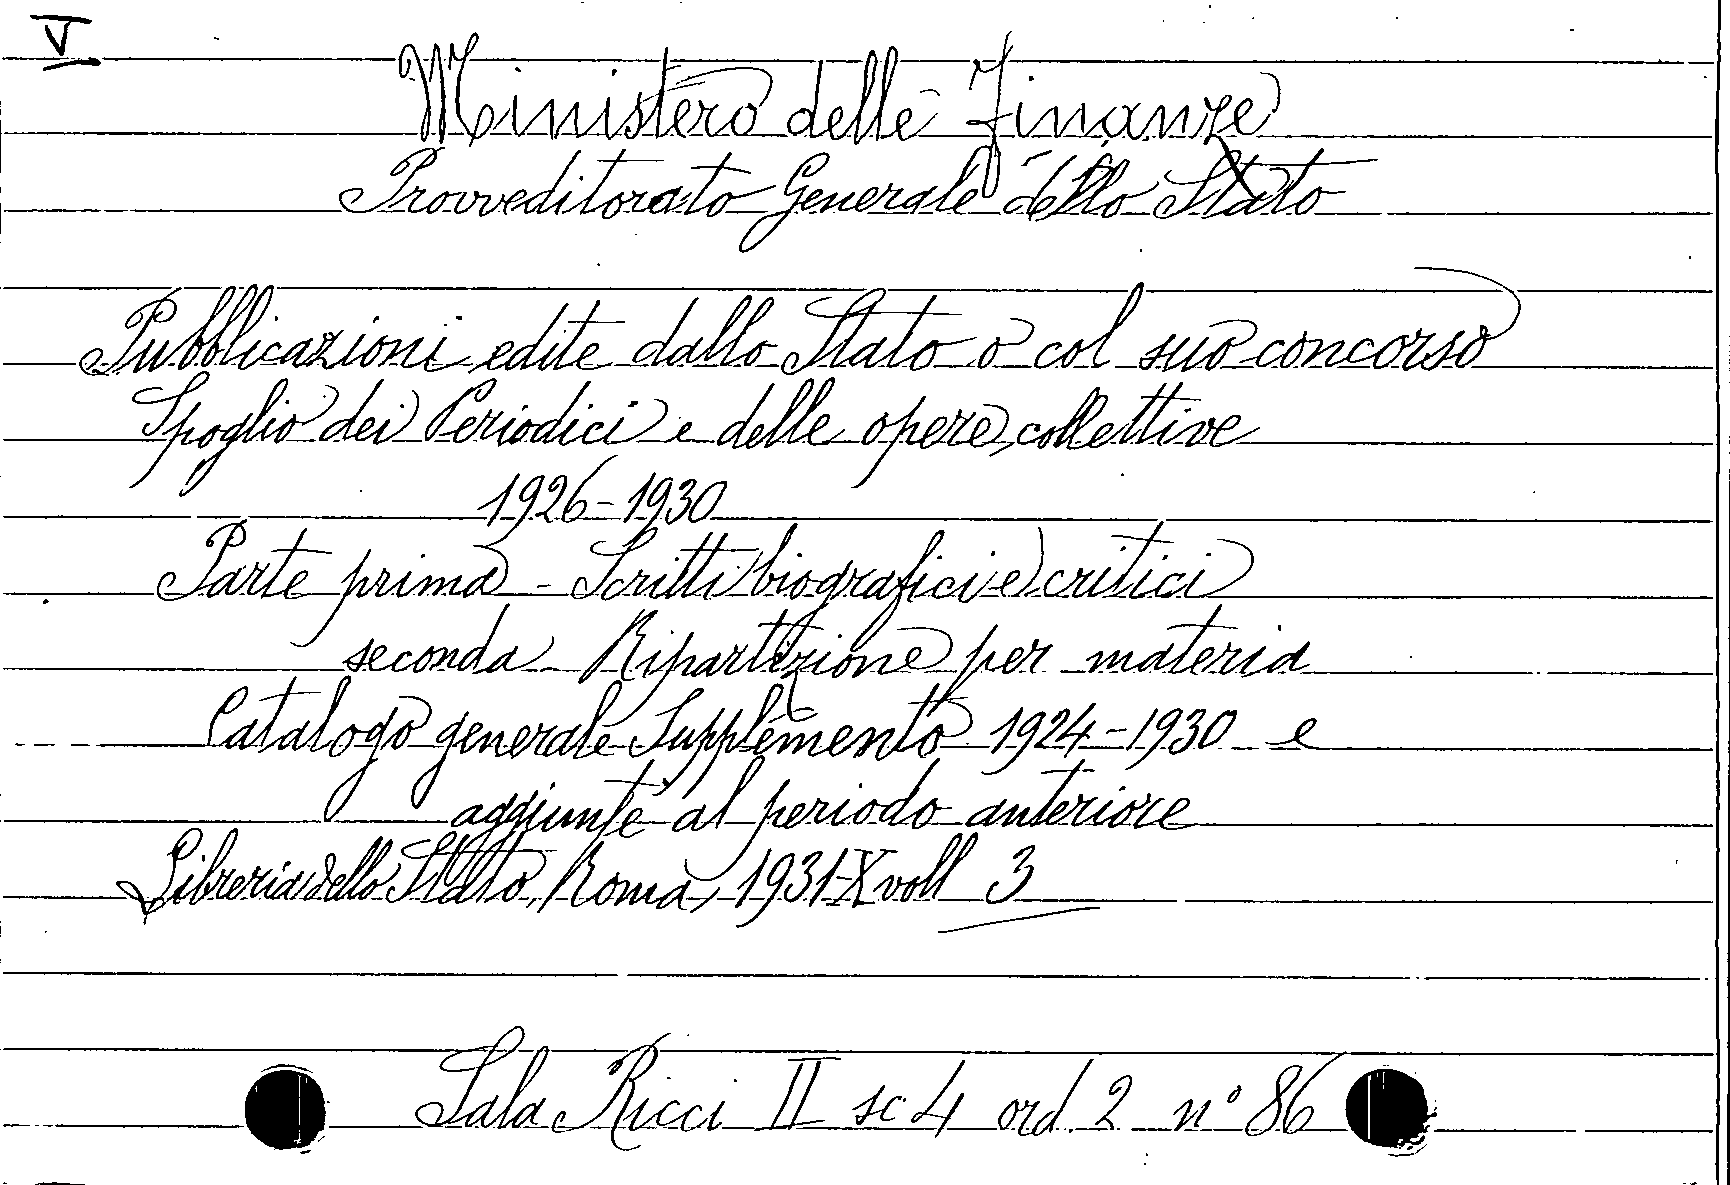 V
Ministero delle Finanze
Provveditorato Generale dello Stato
Pubblicazioni edite dallo Stato o col suo concorso
Spoglio dei Periodici e delle opere collettive
1926-1930
Parte prima - Scritti biografici e critici
seconda - Ripartizione per materia
Catalogo generale Supplemento 1924-1930 e
aggiunte al periodo anteriore
Libreria dello Stato, Roma, 1931-X voll 3
Sala Ricci II sc 4 ord. 2 n° 86